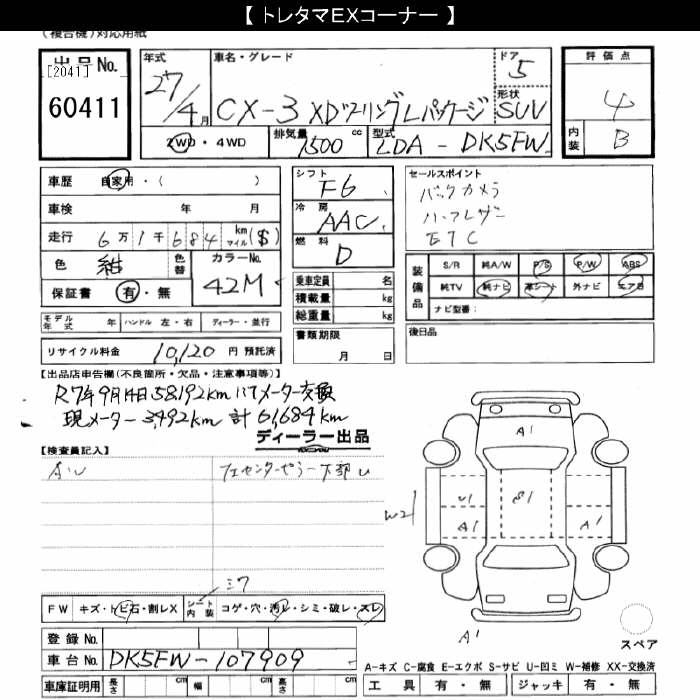 【 トレタマEXコーナー 】
(複合機)対応用紙
出品No.
[2041]
60411
年式
27/4月
車名・グレード
CX-3 XDツーリングLパッケージ
ドア
5
形状
SUV
評価点
4
内装
B
2WD・4WD
排気量
1500 cc
型式
LDA-DK5FW
車歴 自家用・( )
車検 年 月
走行 6万1千684 km マイル ($)
色 紺 色替
カラーNo.
42M
保証書 有・無
シフト
F6
冷房
AAC
燃料
D
乗車定員 名
積載量 kg
総重量 kg
書類期限
月 日
セールスポイント
バックカメラ
ハーフレザー
ETC
装備品
S/R 純A/W P/S P/W ABS
純TV 純ナビ 革シート 外ナビ エアB
ナビ型番:
後日品
モデル年式 年 ハンドル 左・右 ディーラー・並行
リサイクル料金 10,120 円 預託済
【出品店申告欄(不良箇所・欠品・注意事項等)】
R7年9月14日 58192km にてメーター交換
現メーター 3,492km 計 61,684km
ディーラー出品
【検査員記入】
A・U
フェセンターピラー下部U
ミワ
FW キズ・トビ石・割レX シート内装 コゲ・穴・汚レ・シミ・破レ・スレ
登録No.
車台No. DK5FW-107909
車庫証明用 長さ cm 幅 cm 高さ cm
A1
U1
S1
W2
A1
A1
A1
スペア
A-キズ C-腐食 E-エクボ S-サビ U-凹ミ W-補修 XX-交換済
工具 有・無 ジャッキ 有・無